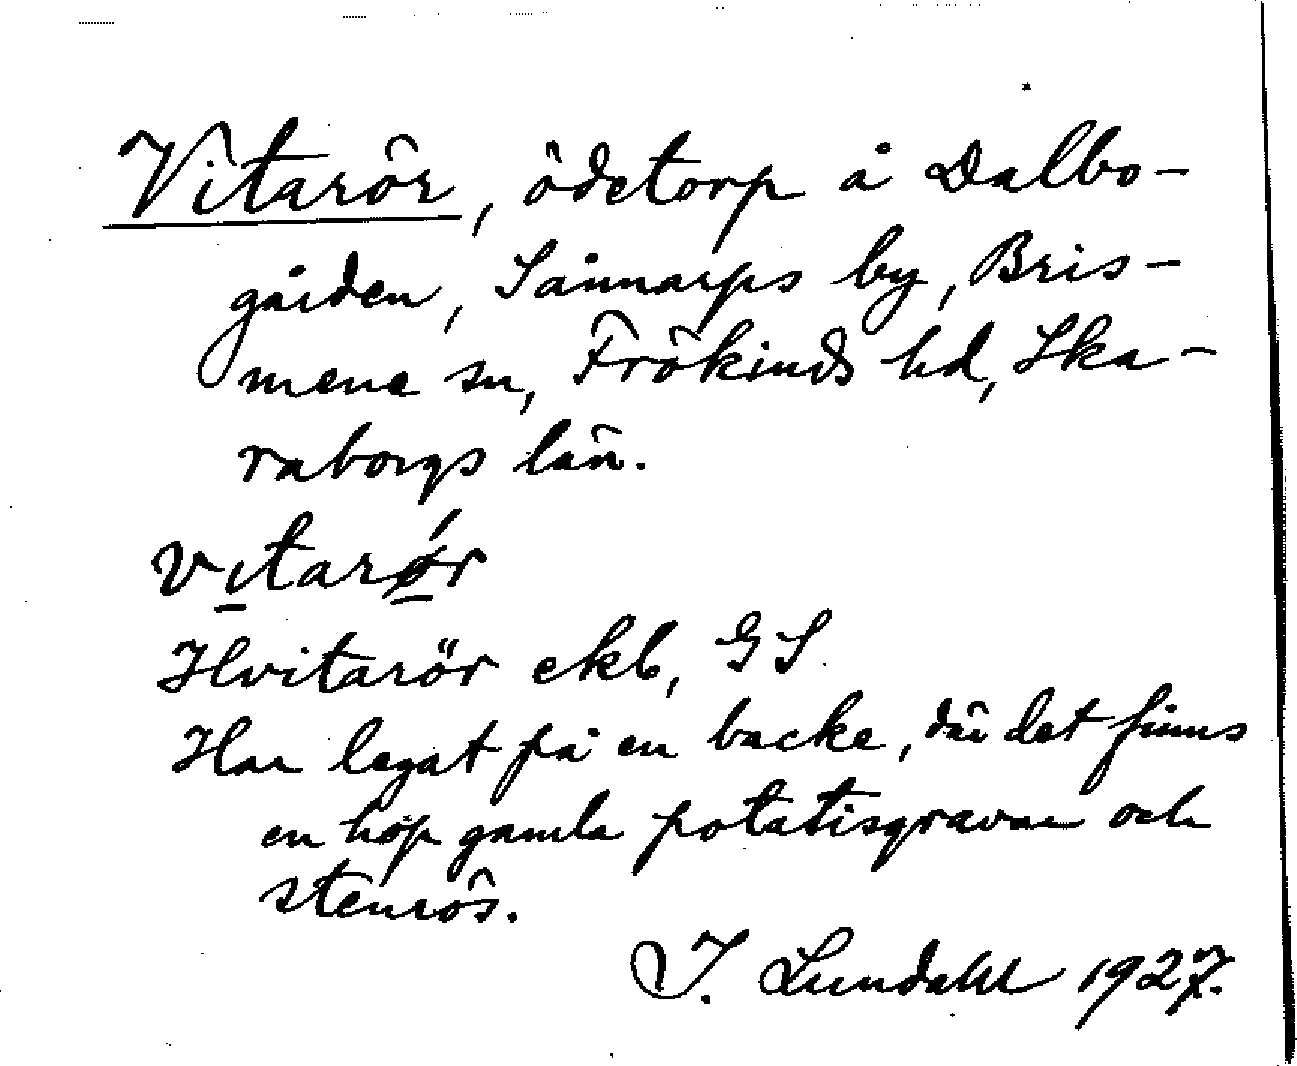 Vitarör, ödetorp å Dalbo-
gården, Sännarps by, Bris-
mene sn, Frökinds hd, Ska-
raborgs län.
vıtarǿr
Hvitarör ekb, GS
Har legat på en backe, där det finns
en hop gamla potatisgravar och
stenrös.
I. Lundahl 1927.